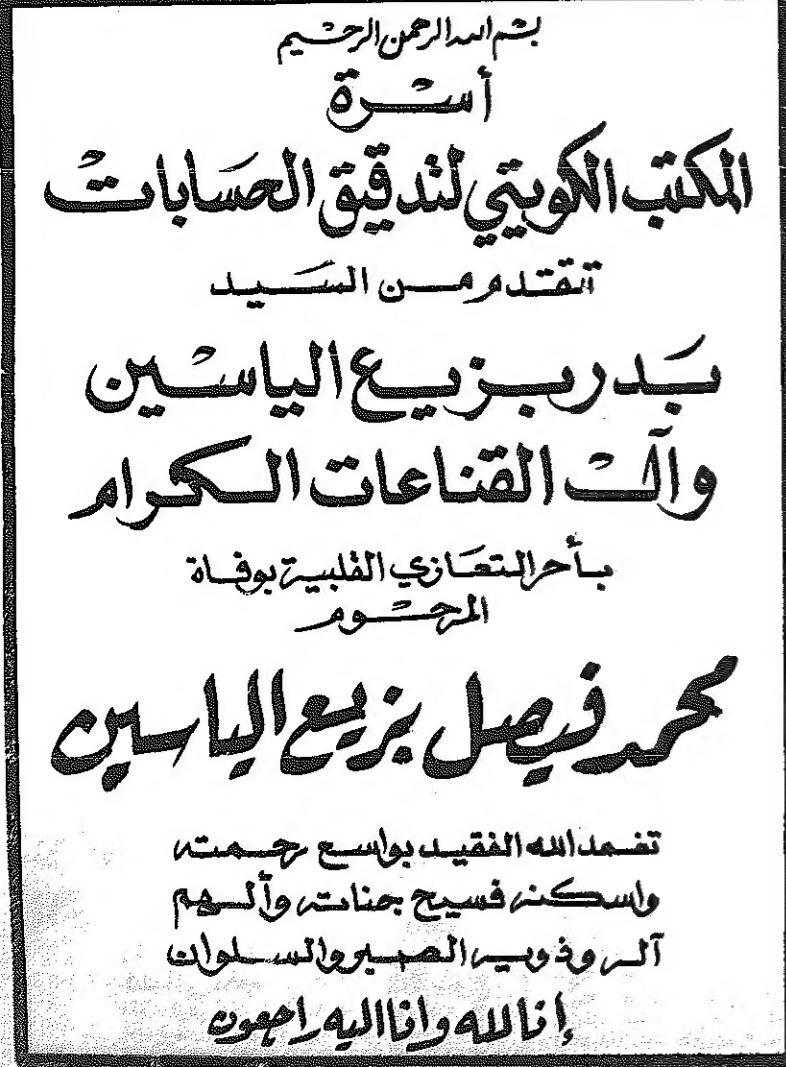 بسم الله الرحمن الرحيم
أسرة
المكتب الكويتي لتدقيق الحسابات
تتقدم من السيد
بدر بزيع الياسين
وآل القناعات الكرام
بأحر التعازي القلبية بوفاة
المرحوم
محمد فيصل بزيع الياسين
تغمد الله الفقيد بواسع رحمته
واسكنه فسيح جناته وألهم
آله وذويه الصبر والسلوان
إنا لله وانا اليه راجعون